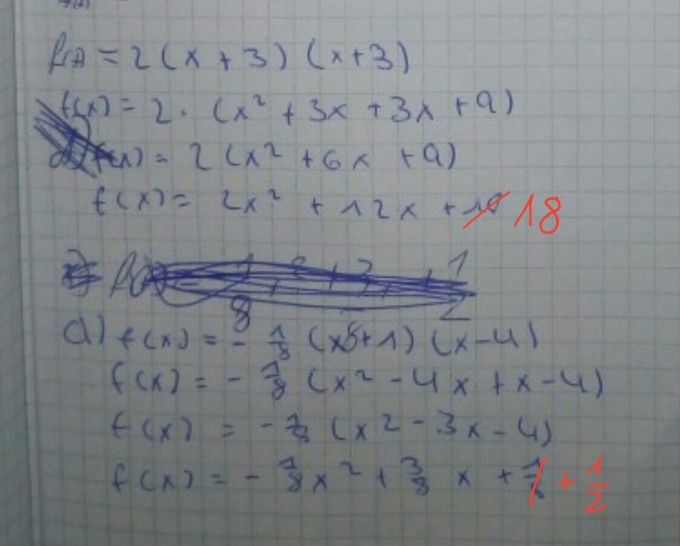 f(x) = 2(x + 3) (x + 3)
f(x) = 2 · (x² + 3x + 3x + 9)
f(x) = 2 (x² + 6x + 9)
f(x) = 2x² + 12x + 18 18
d) f(x) = - 1/8 (x + 1) (x - 4)
f(x) = - 1/8 (x² - 4x + x - 4)
f(x) = - 1/8 (x² - 3x - 4)
f(x) = - 1/8 x² + 3/8 x + 1/2